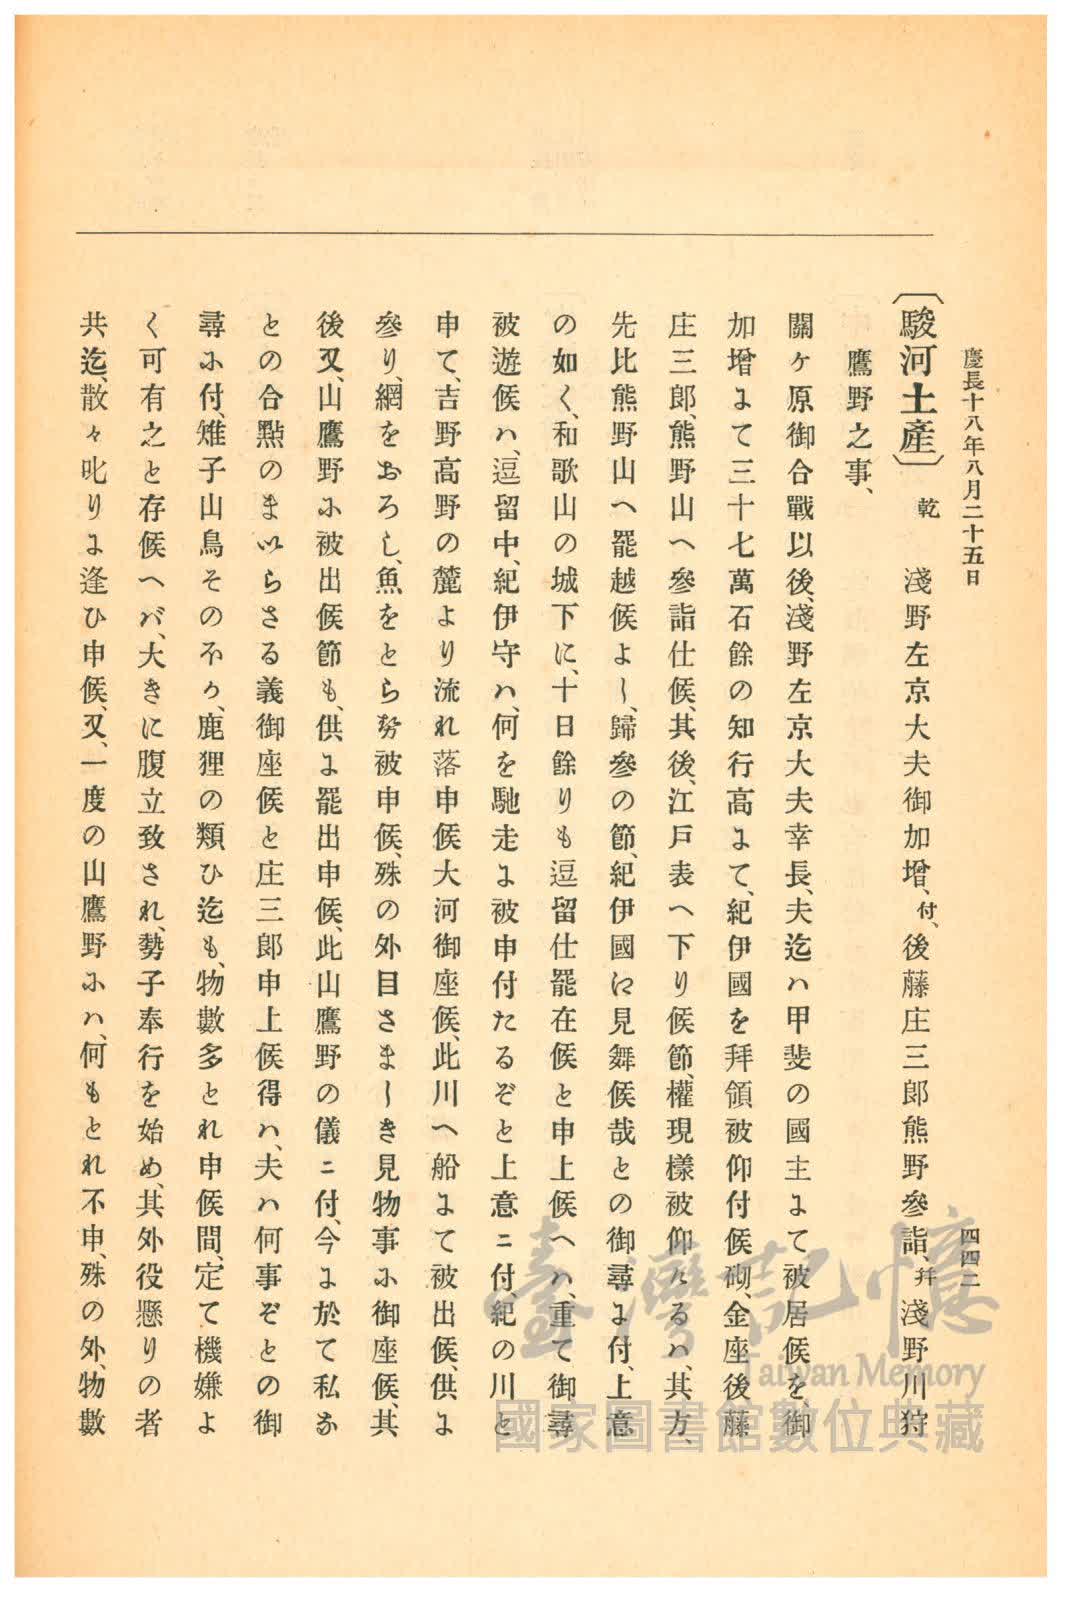 慶長十八年八月二十五日
四四二
〔駿河土產〕 乾 淺野左京大夫御加增、付、後藤庄三郎熊野參詣、幷淺野川狩
鷹野之事、
關ヶ原御合戰以後、淺野左京大夫幸長、夫迄ハ甲斐の國主よて被居候を、御
加增よて三十七萬石餘の知行高よて、紀伊國を拜領被仰付候砌、金座後藤
庄三郎、熊野山へ參詣仕候、其後、江戸表へ下り候節、權現樣被仰たるハ、其方、
先比熊野山へ罷越候よし、歸參の節、紀伊國に見舞候哉との御尋よ付、上意
の如く、和歌山の城下に、十日餘りも逗留仕罷在候と申上候へハ、重て御尋
被遊候ハ、逗留中、紀伊守ハ、何を馳走よ被申付たるぞと上意ニ付、紀の川と
申て、吉野高野の麓より流れ落申候大河御座候、此川へ船よて被出候、供よ
參り、網をおろし、魚をとら努被申候、殊の外目さましき見物事ふ御座候、其
後又、山鷹野ふ被出候節も、供よ罷出申候、此山鷹野の儀ニ付、今よ於て私な
との合點のまいらさる義御座候と庄三郎申上候得ハ、夫ハ何事ぞとの御
尋ふ付、雉子山鳥そのほか、鹿狸の類ひ迄も、物數多とれ申候間、定て機嫌よ
く可有之と存候へバ、大きに腹立致され、勢子奉行を始め、其外役懸りの者
共迄、散々叱りよ逢ひ申候、又、一度の山鷹野ふハ、何もとれ不申、殊の外、物數
臺灣記憶
Taiwan Memory
國家圖書館數位典藏